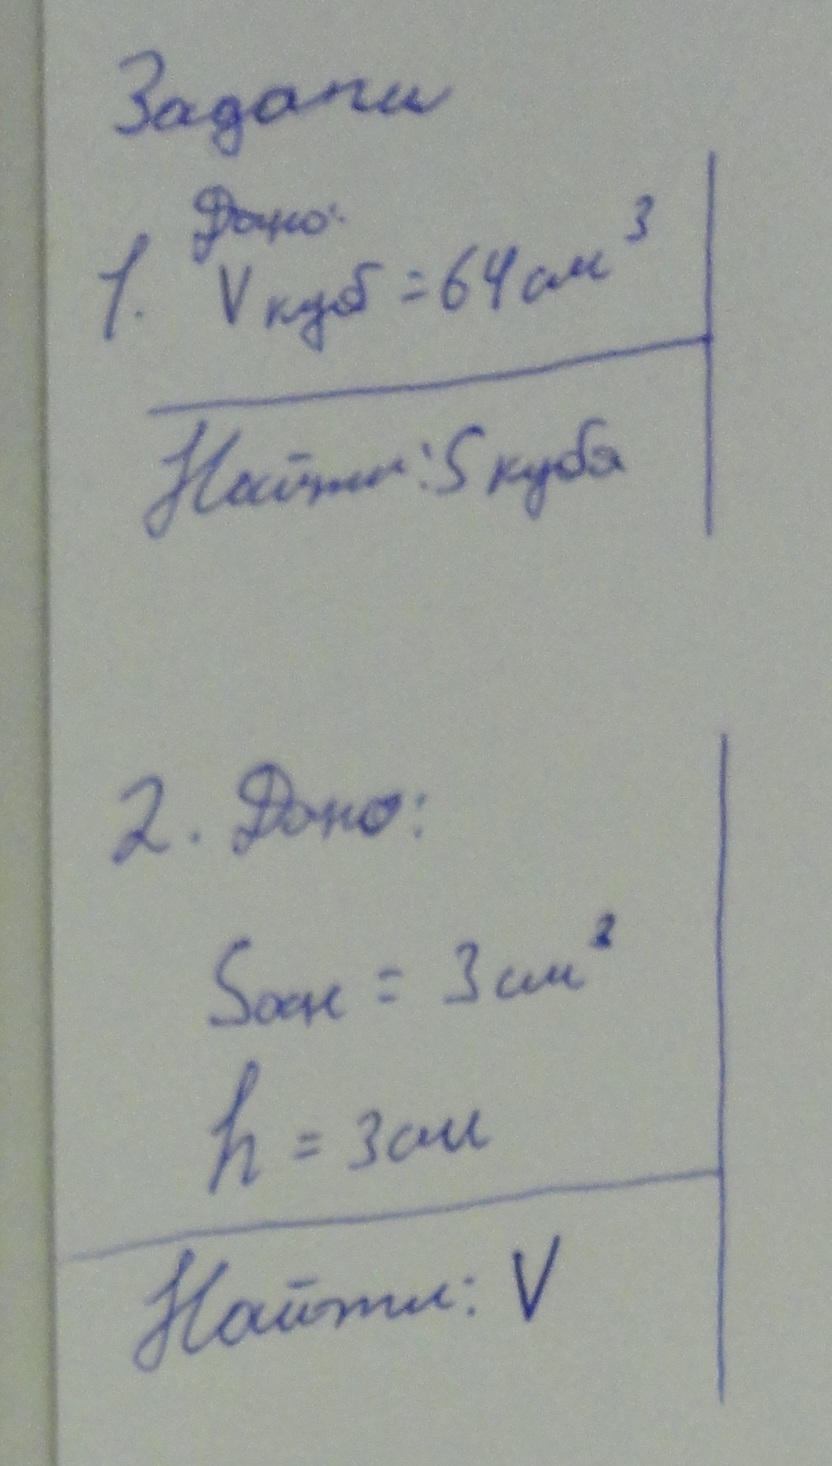 Задачи
Дано:
1. V куб = 64 см³
Найти: S куба
2. Дано:
Sосн = 3 см²
h = 3 см
Найти: V